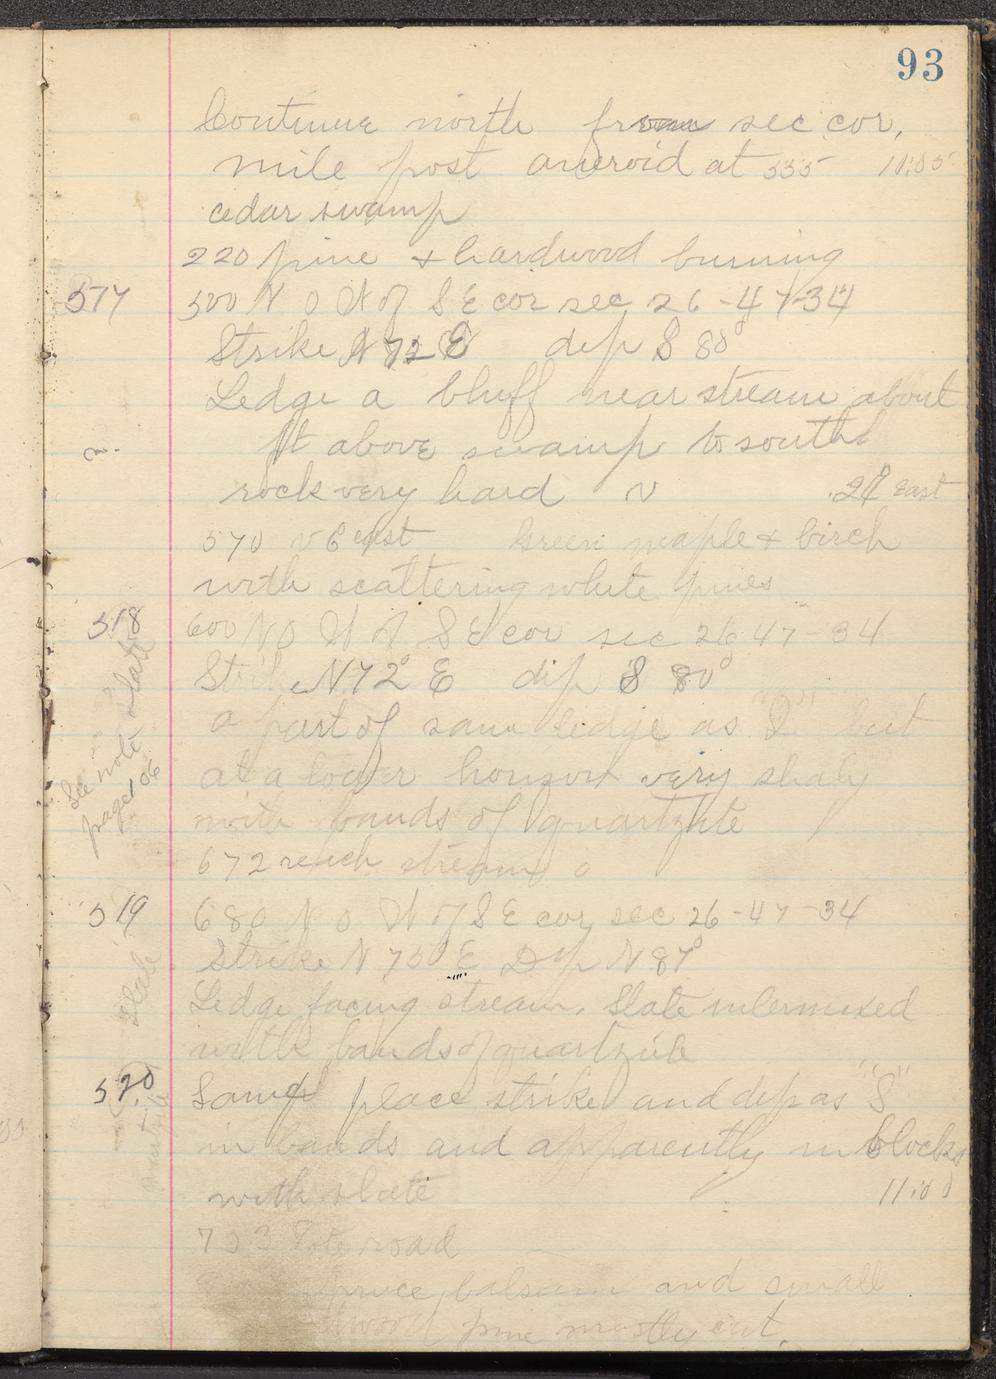 93
Continue north from sec cor,
mile post aneroid at 535 10:05
cedar swamp
220 pine & hardwood burning
517 500 N 0 W of S E cor sec 26-47-34
Strike N 72 E dip S 80°
Ledge a bluff near stream about
ft above swamp to south
rock very hard east
570 east Green maple & birch
with scattering white pines
518 600 N 0 W of S E cor sec 26-47-34
Strike N 72° E dip S 80°
a part of same ledge as but
at a lower horizon very shaly
with bands of quartzite
See note page 106
Slate
672 reach stream
519 680 N 0 W of S E cor sec 26-47-34
Strike N 75° E Dip N 87°
Ledge facing stream. Slate intermixed
with bands of quartzite
Slate
520 Same place strike and dip as "S"
in bands and apparently in blocks
with slate 11:00
Tote road
spruce balsam and small
pine mostly cut.